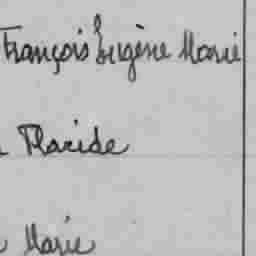 François Eugène Marie
Placide
Marie